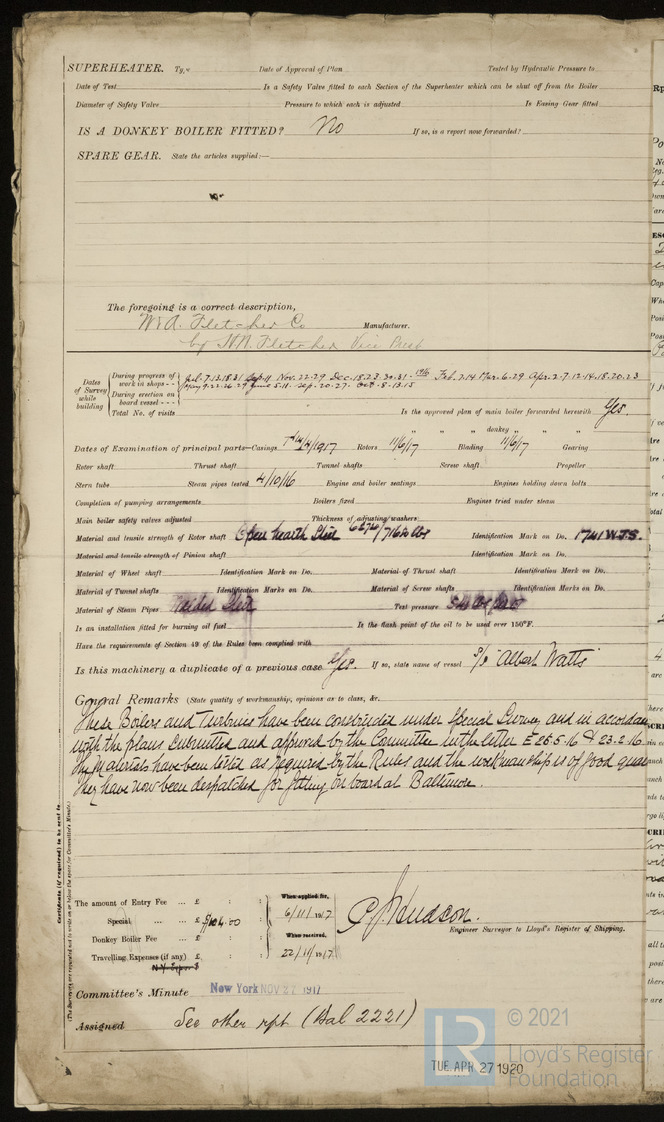 SUPERHEATER. Type Date of Approval of Plan Tested by Hydraulic Pressure to
Date of Test Is a Safety Valve fitted to each Section of the Superheater which can be shut off from the Boiler
Diameter of Safety Valve Pressure to which each is adjusted Is Easing Gear fitted
IS A DONKEY BOILER FITTED? No If so, is a report now forwarded?
SPARE GEAR. State the articles supplied:—
The foregoing is a correct description,
W. & A. Fletcher Co Manufacturer.
by Fletcher Vice Prest
Dates of Survey while building
During progress of work in shops - - Jul. 7.13.18.31 Sep. 11 Nov. 22.29 Dec. 18.23.30.31 - 1916 Feb. 7.14 Mar. 6.29 Apr. 2.7.12.14.18.20.23
During erection on board vessel - - - May 9.22.26.29 June 5.11. Sep. 20.27. Oct. 8.13.15
Total No. of visits Is the approved plan of main boiler forwarded herewith Yes.
" " " donkey " "
Dates of Examination of principal parts—Casings Rotors 11/6/17 Blading 11/6/17 Gearing
Rotor shaft Thrust shaft Tunnel shafts Screw shaft Propeller
Stern tube Steam pipes tested 4/10/16 Engine and boiler seatings Engines holding down bolts
Completion of pumping arrangements Boilers fixed Engines tried under steam
Main boiler safety valves adjusted Thickness of adjusting washers
Material and tensile strength of Rotor shaft Open hearth Steel Identification Mark on Do. 1741 W.J.S.
Material and tensile strength of Pinion shaft Identification Mark on Do.
Material of Wheel shaft Identification Mark on Do. Material of Thrust shaft Identification Mark on Do.
Material of Tunnel shafts Identification Marks on Do. Material of Screw shafts Identification Marks on Do.
Material of Steam Pipes Welded Steel Test pressure
Is an installation fitted for burning oil fuel Is the flash point of the oil to be used over 150°F.
Have the requirements of Section 49 of the Rules been complied with
Is this machinery a duplicate of a previous case Yes. If so, state name of vessel S/S "Albert Watts"
General Remarks (State quality of workmanship, opinions as to class, &c.
These Boilers and Turbines have been constructed under Special Survey and in accordan
with the plans submitted and approved by the Committee in the letter E 26.5.16 & 23.2.16
The Materials have been tested as required by the Rules and the workmanship is of good qua
They have now been despatched for fitting on board at Baltimore.
Certificate (if required) to be sent to
(The Surveyors are requested not to write on or below the space for Committee's Minute.)
The amount of Entry Fee ... £ : : When applied for,
Special ... ... £ $104.00 6/11/1917
Donkey Boiler Fee ... £ : : When received,
Travelling Expenses (if any) £ : : 22/11/1917
Hudson.
Engineer Surveyor to Lloyd's Register of Shipping.
Committee's Minute New York NOV 27 1917
Assigned See other rpt (Bal 2221)
TUE. APR. 27 1920
LR
© 2021
Lloyd's Register
Foundation